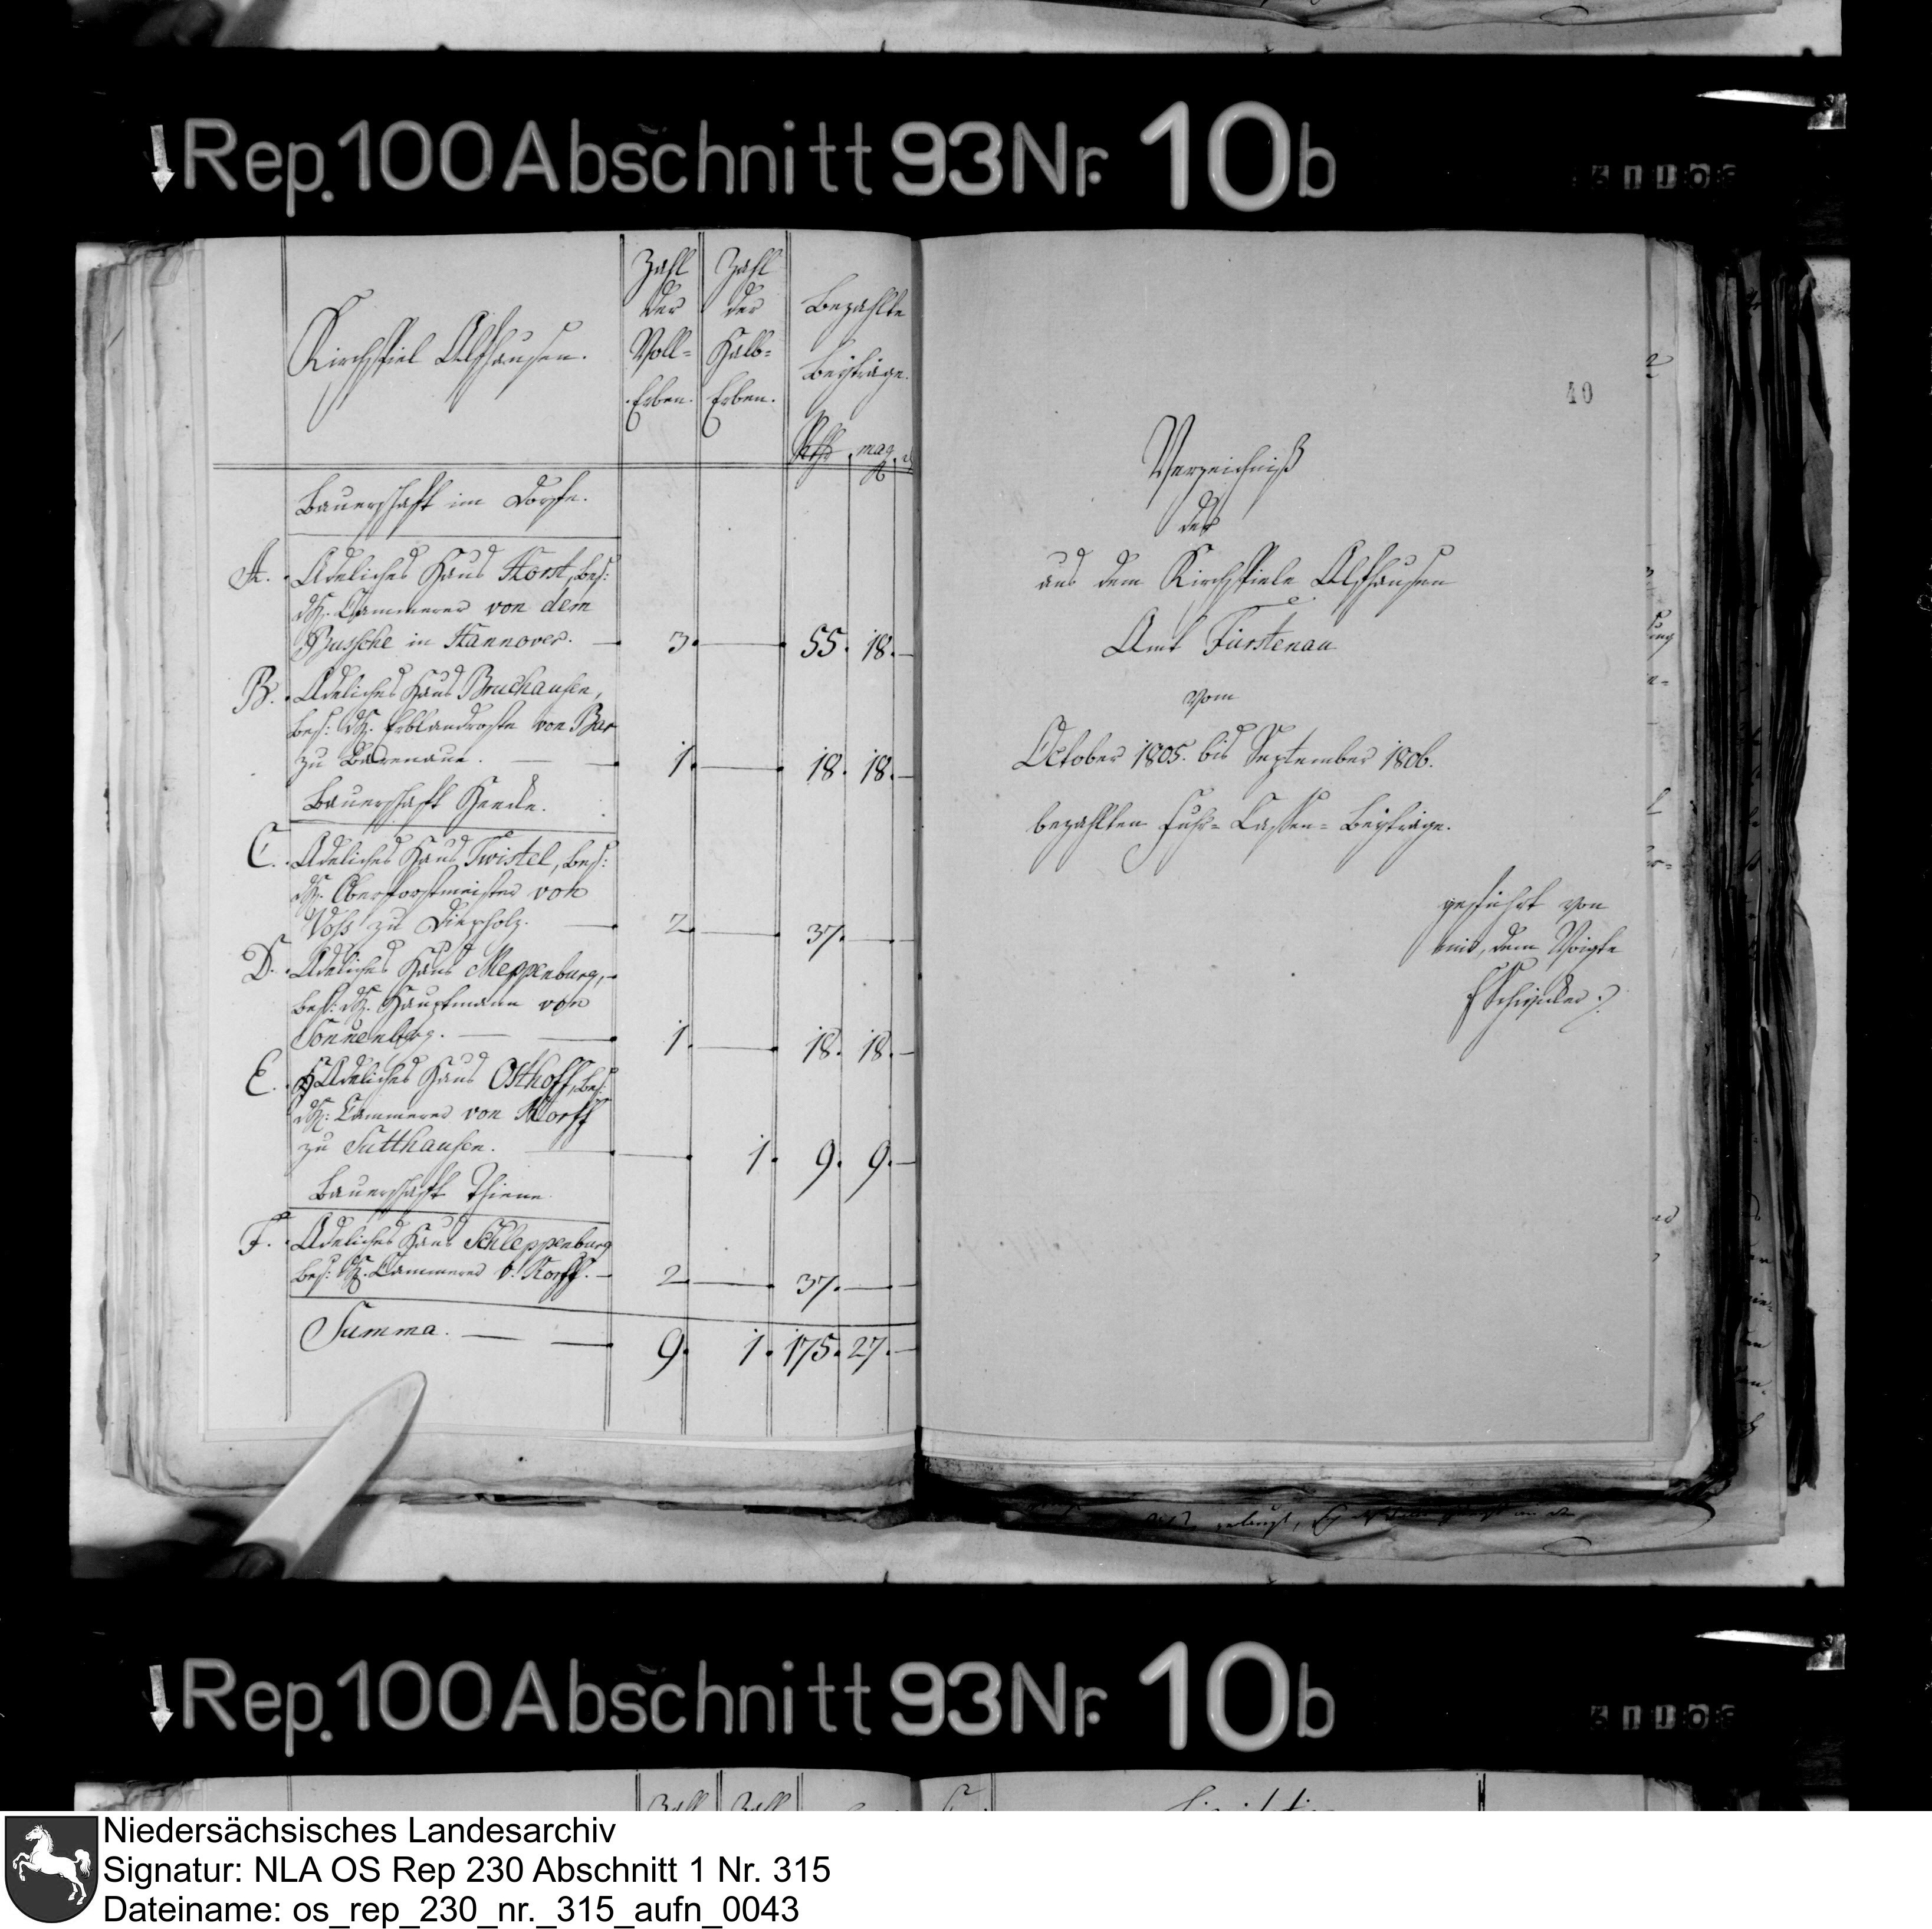 Rep. 100 Abschnitt 93 Nr. 10b
Kirchspiel Alfhausen.
Zahl der Voll-Erben.
Zahl der Halb-Erben.
Bezahlte Beyträge.
Rthr mg d
Bauerschaft im Dorfe.
A. Adeliches Haus Horst, bes:
dH. Cammerer von dem
Bussche in Hannover. — 3. — 55. 18. —
B. Adeliches Haus Bruchausen,
bes: dH. Erblandroste von Bar
zu Barenaue. — 1. — 18. 18. —
Bauerschaft Heeke.
C. Adeliches Haus Twistel, bes:
dH. Oberforstmeister von
Voss zu Diepholz. — 2. — 37. — —
D. Adeliches Haus Meppenburg,
bes: dH. Hauptmann von
Sonnenberg. — 1. — 18. 18. —
E. Adeliches Haus Osthoff, bes:
dH: Cammerer von Korff
zu Sutthausen. — — 1. 9. 9. —
Bauerschaft Thiene
F. Adeliches Haus Schleppenburg
bes: dH. Cammerer v. Korff. — 2. — 37. — —
Summa. — — 9. 1. 175. 27. —
40
Verzeichniß
der
aus dem Kirchspiele Alfhausen
Amt Fürstenau
vom
October 1805. bis September 1806.
bezahlten Fuhr-Cassen-Beyträge.
geführt von
mir, dem Voigte
Rep. 100 Abschnitt 93 Nr. 10b
Zahl Zahl
Niedersächsisches Landesarchiv
Signatur: NLA OS Rep 230 Abschnitt 1 Nr. 315
Dateiname: os_rep_230_nr._315_aufn_0043